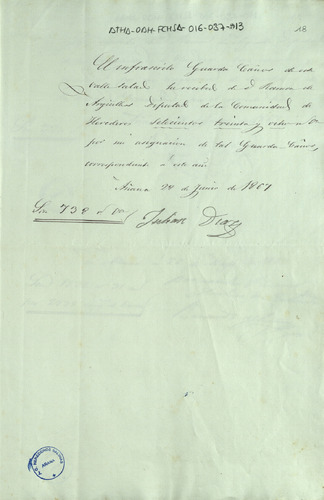 ATHA-DAH-FCHSA-016-037-013
18
El infrascrito Guarda Caños de este
Valle Salado he recibido de D.
Diputado de la Comunidad de
Herederos setecientos treinta y ocho
por mi asignacion de tal Guarda-Caños,
correspondiente á este año
Añana 24 de Junio de 1867
Son 738
Julian Diaz
Añana